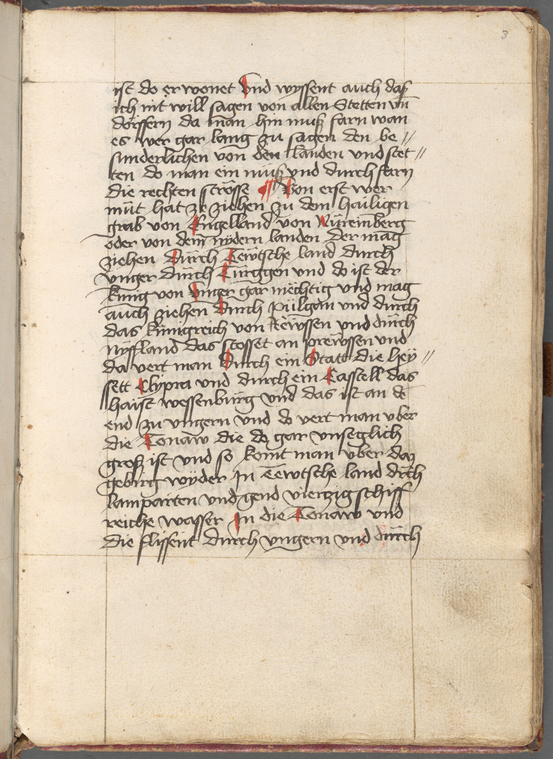 3
ist do er wonet Vnd wyssent auch daß
ich nit will sagen von allen Stetten vn̄
dorffern da man hin muß farn wan
es wer gar lang zu sagen den be //
sunderlichen von den landen vnd stet //
ten do man ein muß vnd durch farn
die rechten strosse Von erst wer
müt hat ze ziehen zu dem hailigen
grab von Engelland von Nüremberg
oder von dem nydern landen der mag
ziehen Durch Tewtsche land durch
vnger durch Türggen vnd do ist der
künig von Vnger gar mechtig vnd mag
auch ziehen Durch pülgern vnd durch
das künigreich von Rewssen vnd durch
nyffland das stosset an prewssen vnd
da vert man Durch ein Statt die hey //
sett Cypra vnd durch ein Castell das
haist wessenburg vnd das ist an de
end zu vngern vnd do vert man vber
die Tonaw die do gar vnseglich
groß ist vnd so komt man vber daz
gebirg wyder In Tewtsche land durch
lamparten vnd gend vierzig schiff
reiche wasser In die Tonaw vnd
die flissent durch vngern vnd durch